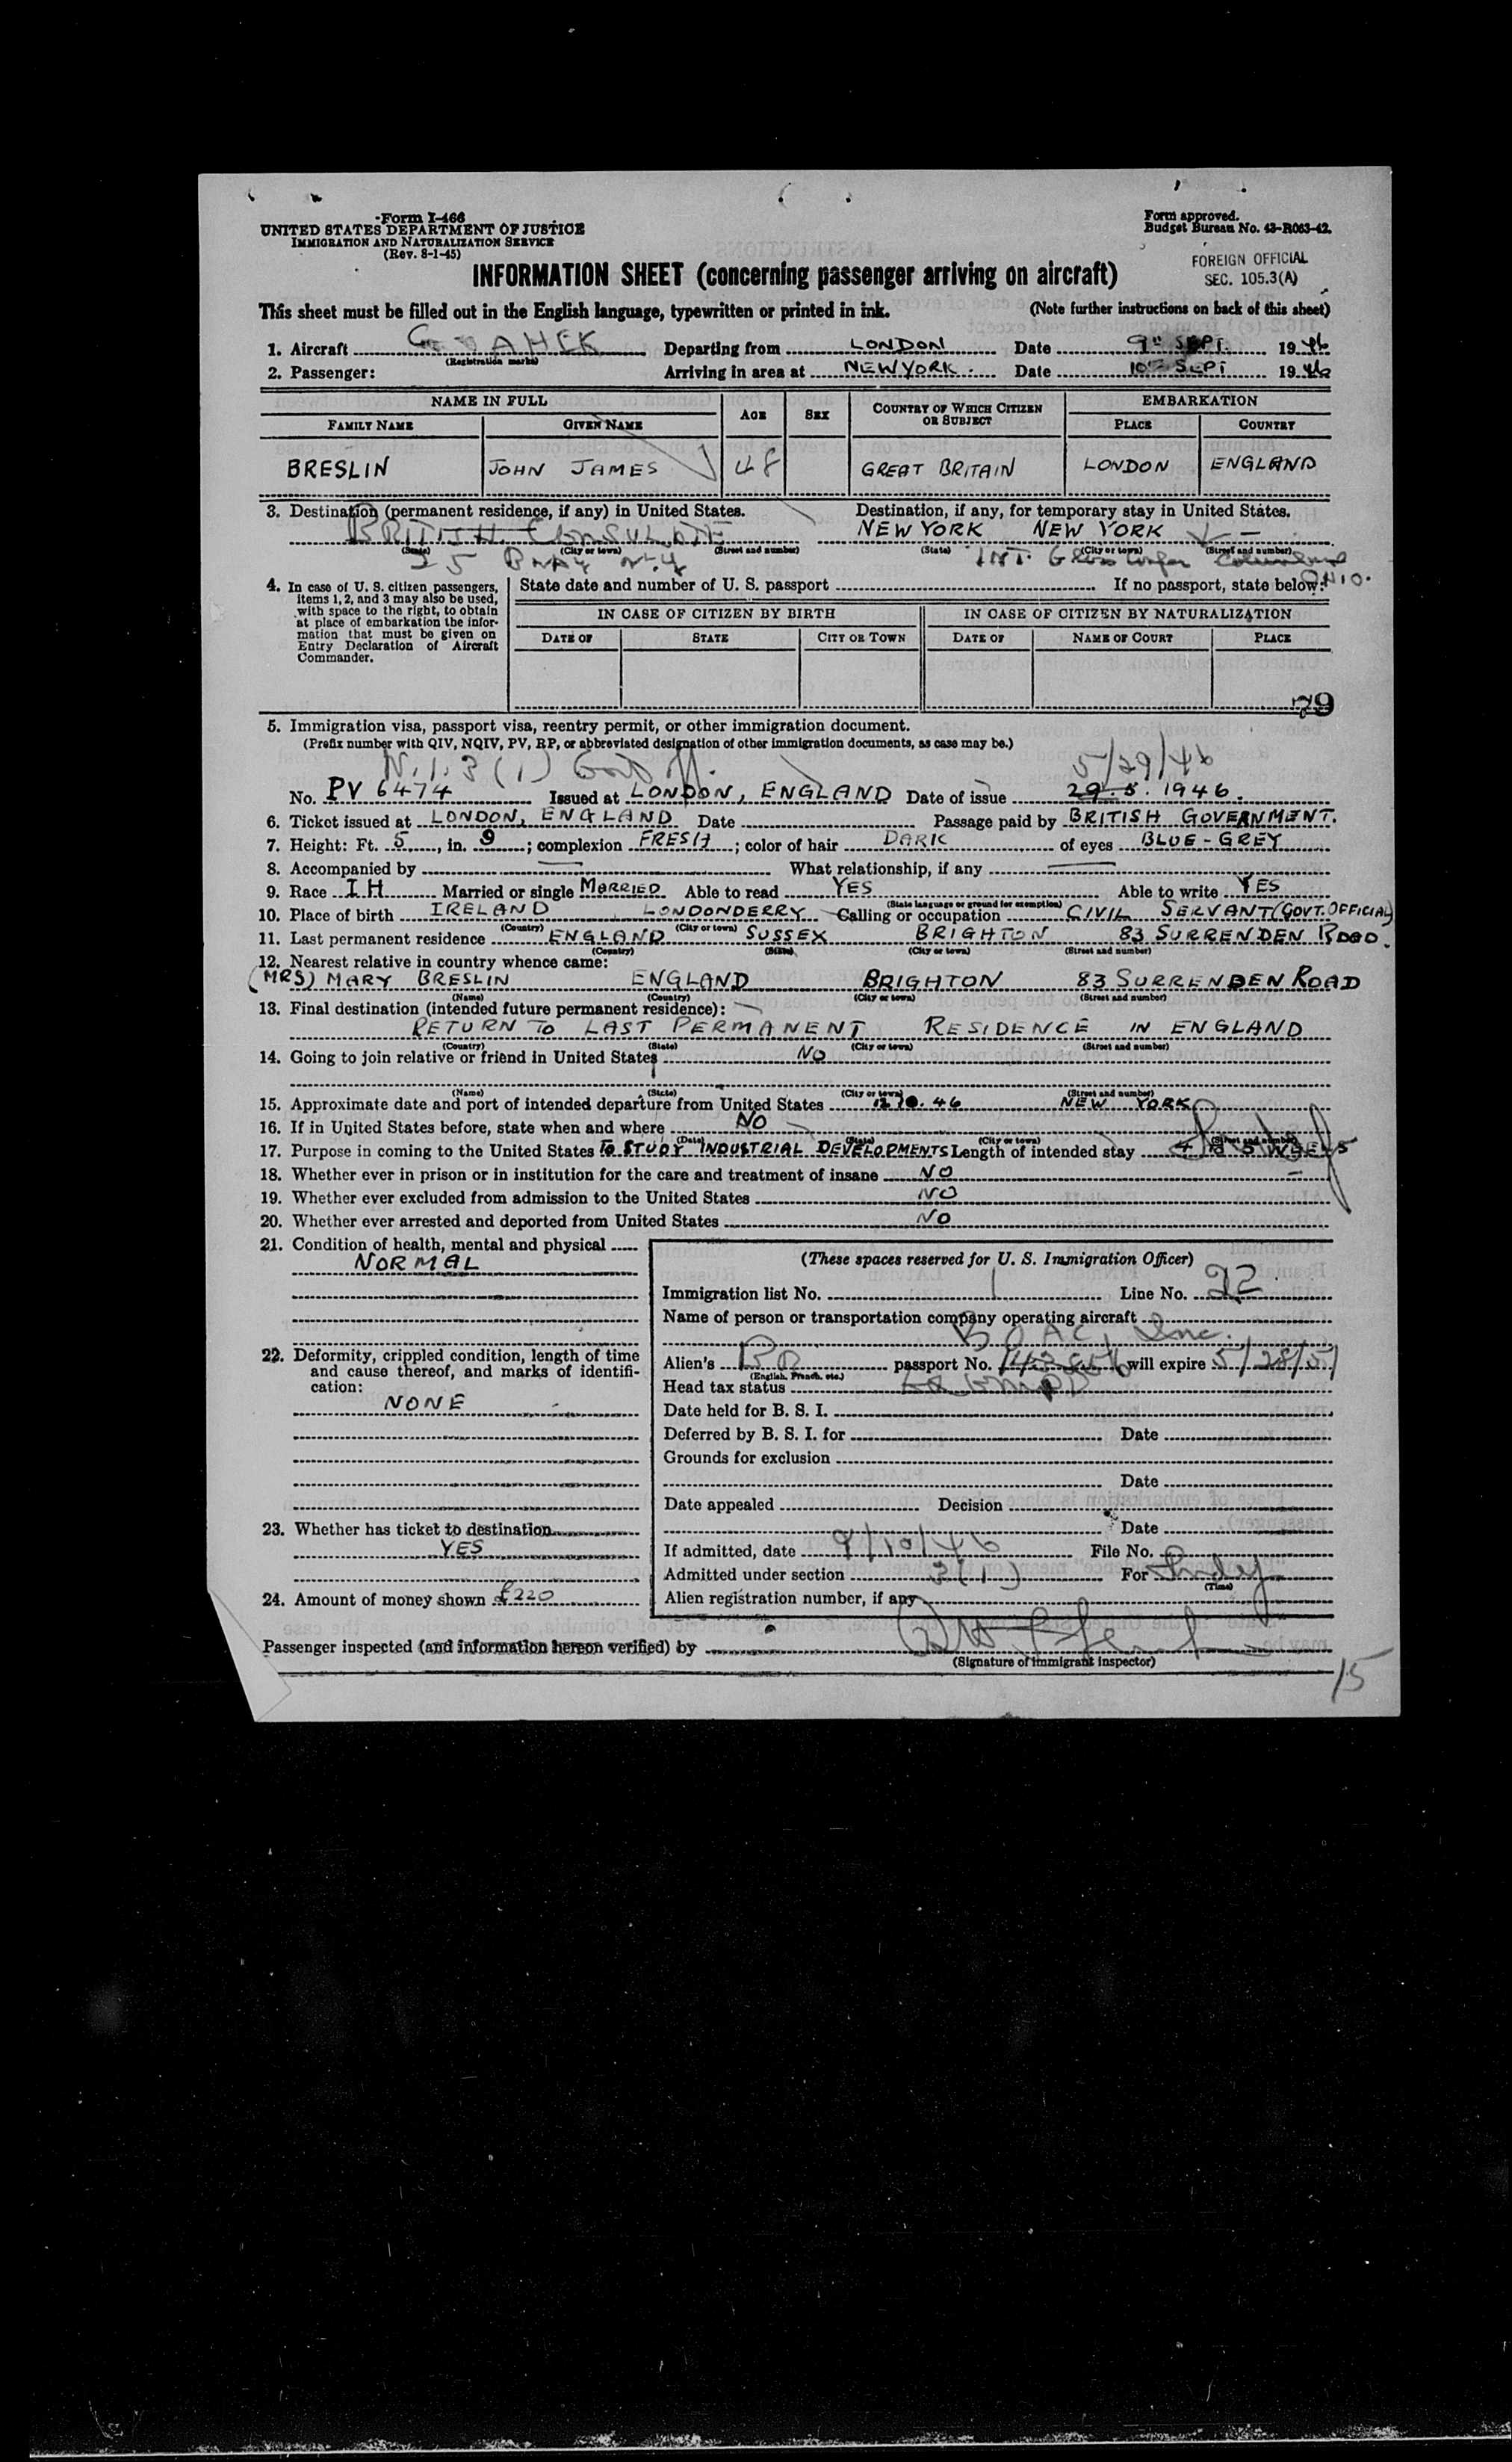 Form I-466
UNITED STATES DEPARTMENT OF JUSTICE
IMMIGRATION AND NATURALIZATION SERVICE
(Rev. 8-1-45)
Form approved.
Budget Bureau No. 43-R063-42.
FOREIGN OFFICIAL
SEC. 105.3(A)
INFORMATION SHEET (concerning passenger arriving on aircraft)
This sheet must be filled out in the English language, typewritten or printed in ink. (Note further instructions on back of this sheet)
1. Aircraft G AHEK Departing from LONDON Date 9th SEPT. 1946
(Registration marks)
2. Passenger: Arriving in area at NEW YORK. Date 10th SEPT 1946
NAME IN FULL AGE SEX COUNTRY OF WHICH CITIZEN OR SUBJECT EMBARKATION
FAMILY NAME GIVEN NAME PLACE COUNTRY
BRESLIN JOHN JAMES 48 GREAT BRITAIN LONDON ENGLAND
3. Destination (permanent residence, if any) in United States. Destination, if any, for temporary stay in United States.
BRITISH CONSULATE NEW YORK NEW YORK
(State) (City or town) (Street and number) (State) (City or town) (Street and number)
25 BWAY N.Y. INT. OHIO.
4. In case of U. S. citizen passengers, items 1, 2, and 3 may also be used, with space to the right, to obtain at place of embarkation the information that must be given on Entry Declaration of Aircraft Commander.
State date and number of U. S. passport If no passport, state below:
IN CASE OF CITIZEN BY BIRTH IN CASE OF CITIZEN BY NATURALIZATION
DATE OF STATE CITY OR TOWN DATE OF NAME OF COURT PLACE
79
5. Immigration visa, passport visa, reentry permit, or other immigration document.
(Prefix number with QIV, NQIV, PV, RP, or abbreviated designation of other immigration documents, as case may be.)
N.I. 3(1) 5/29/46
No. PV 6474 Issued at LONDON, ENGLAND Date of issue 29.5.1946.
6. Ticket issued at LONDON, ENGLAND Date Passage paid by BRITISH GOVERNMENT.
7. Height: Ft. 5, in. 9; complexion FRESH; color of hair DARK of eyes BLUE-GREY
8. Accompanied by What relationship, if any
9. Race IH Married or single MARRIED Able to read YES Able to write YES
(State language or ground for exemption)
10. Place of birth IRELAND LONDONDERRY Calling or occupation CIVIL SERVANT (GOVT. OFFICIAL)
(Country) (City or town)
11. Last permanent residence ENGLAND SUSSEX BRIGHTON 83 SURRENDEN ROAD.
(Country) (State) (City or town) (Street and number)
12. Nearest relative in country whence came:
(MRS) MARY BRESLIN ENGLAND BRIGHTON 83 SURRENDEN ROAD
(Name) (Country) (City or town) (Street and number)
13. Final destination (intended future permanent residence):
RETURN TO LAST PERMANENT RESIDENCE IN ENGLAND
(Country) (State) (City or town) (Street and number)
14. Going to join relative or friend in United States NO
(Name) (State) (City or town) (Street and number)
15. Approximate date and port of intended departure from United States 12.10.46 NEW YORK
16. If in United States before, state when and where NO
(Date) (State) (City or town) (Street and number)
17. Purpose in coming to the United States TO STUDY INDUSTRIAL DEVELOPMENTS Length of intended stay 4 TO 5 WEEKS
18. Whether ever in prison or in institution for the care and treatment of insane NO
19. Whether ever excluded from admission to the United States NO
20. Whether ever arrested and deported from United States NO
21. Condition of health, mental and physical
NORMAL
22. Deformity, crippled condition, length of time and cause thereof, and marks of identification:
NONE
23. Whether has ticket to destination
YES
24. Amount of money shown £220
(These spaces reserved for U. S. Immigration Officer)
Immigration list No. 1 Line No. 22
Name of person or transportation company operating aircraft
BOAC, Inc.
Alien's BR passport No. will expire 5/28/51
(English, French, etc.)
Head tax status Exempt
Date held for B. S. I.
Deferred by B. S. I. for Date
Grounds for exclusion
Date
Date appealed Decision
Date
If admitted, date 9/10/46 File No.
Admitted under section 3(1) For
(Time)
Alien registration number, if any
Passenger inspected (and information hereon verified) by
(Signature of immigrant inspector)
15